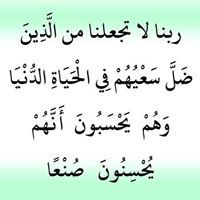 ربنا لا تجعلنا من الَّذِينَ
ضَلَّ سَعْيُهُمْ فِي الْحَيَاةِ الدُّنْيَا
وَهُمْ يَحْسَبُونَ أَنَّهُمْ
يُحْسِنُونَ صُنْعًا